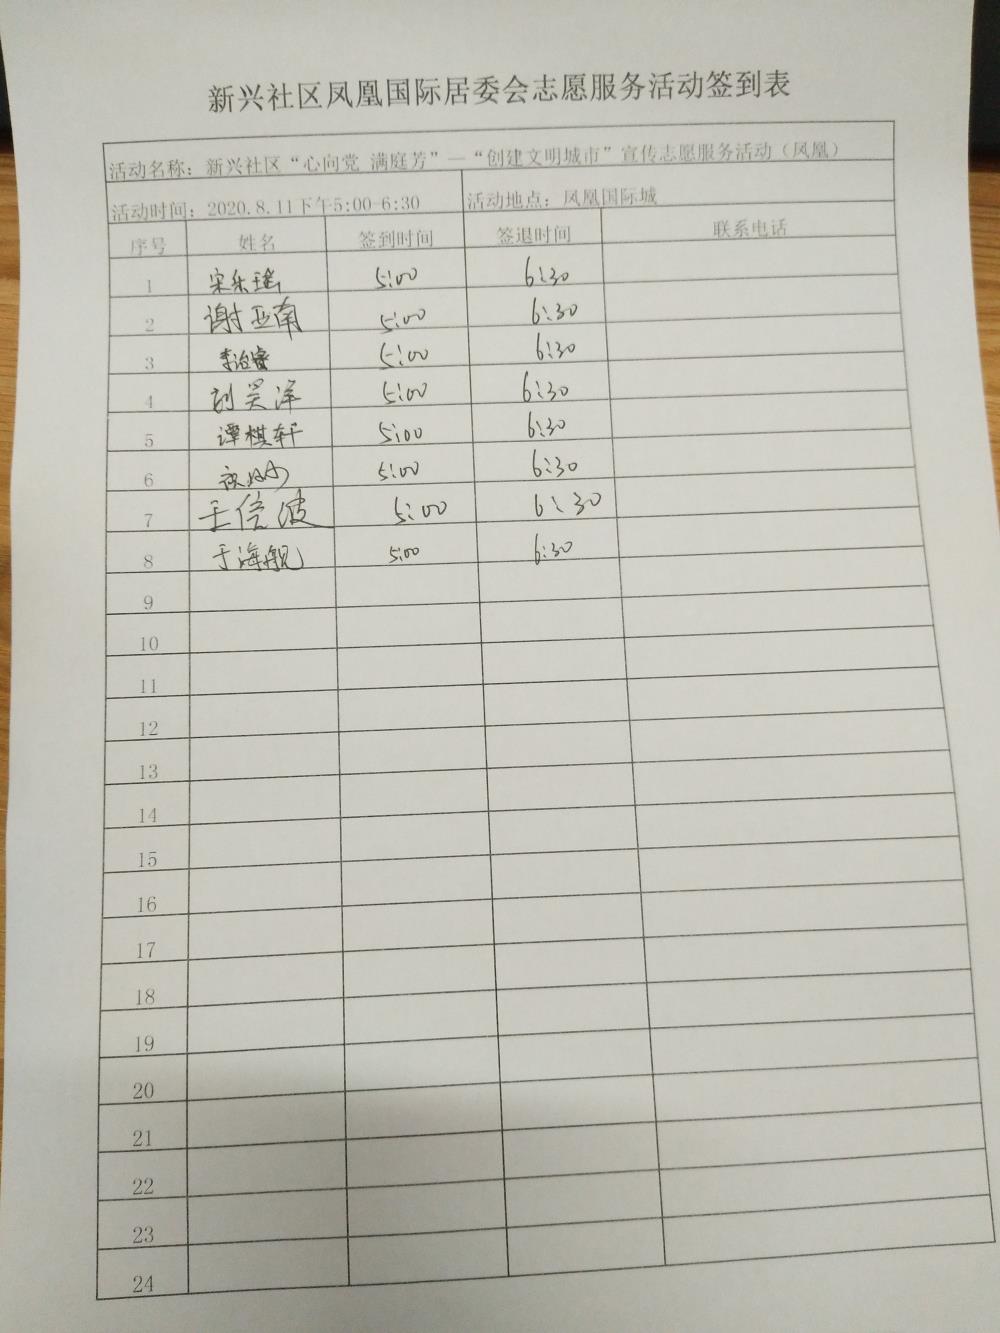 新兴社区凤凰国际居委会志愿服务活动签到表
活动名称：新兴社区“心向党 满庭芳”—“创建文明城市”宣传志愿服务活动（凤凰）
活动时间：2020.8.11下午5:00-6:30 活动地点：凤凰国际城
序号 姓名 签到时间 签退时间 联系电话
1 宋乐瑶 5:00 6:30
2 谢亚南 5:00 6:30
3 李治睿 5:00 6:30
4 刘昊洋 5:00 6:30
5 谭棋轩 5:00 6:30
6 5:00 6:30
7 王信波 5:00 6:30
8 于海舰 5:00 6:30
9
10
11
12
13
14
15
16
17
18
19
20
21
22
23
24